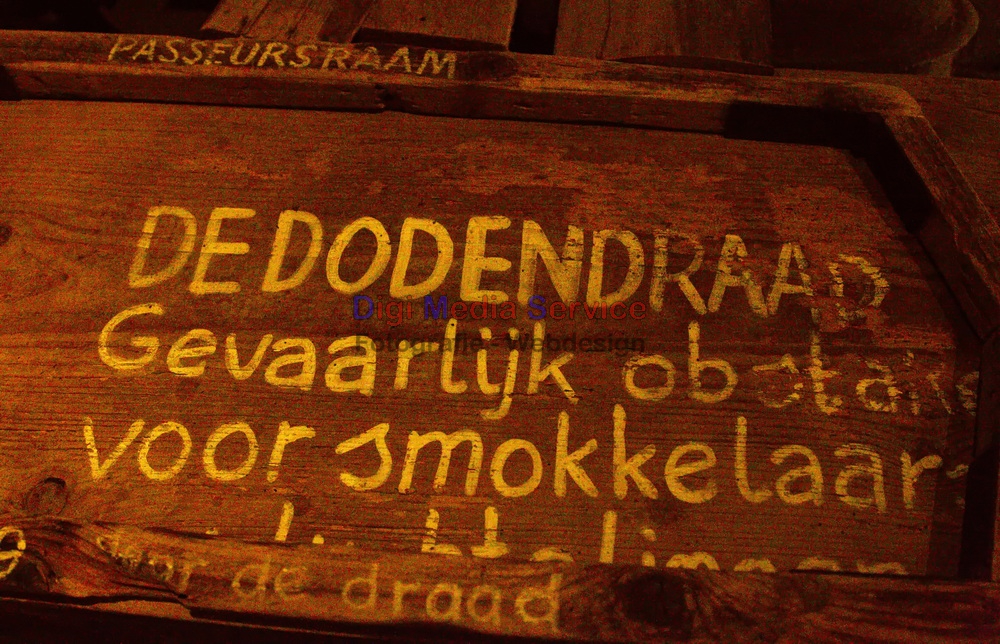 PASSEURSRAAM
DE DODENDRAAD
Digi Media Service
Gevaarlijk obstakel
Fotografie - Webdesign
voor smokkelaars
de draad